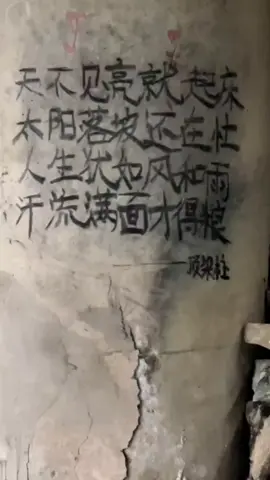 天不见亮就起床
太阳落坡还在忙
人生犹如风和雨
汗流满面才得粮
——顶梁柱